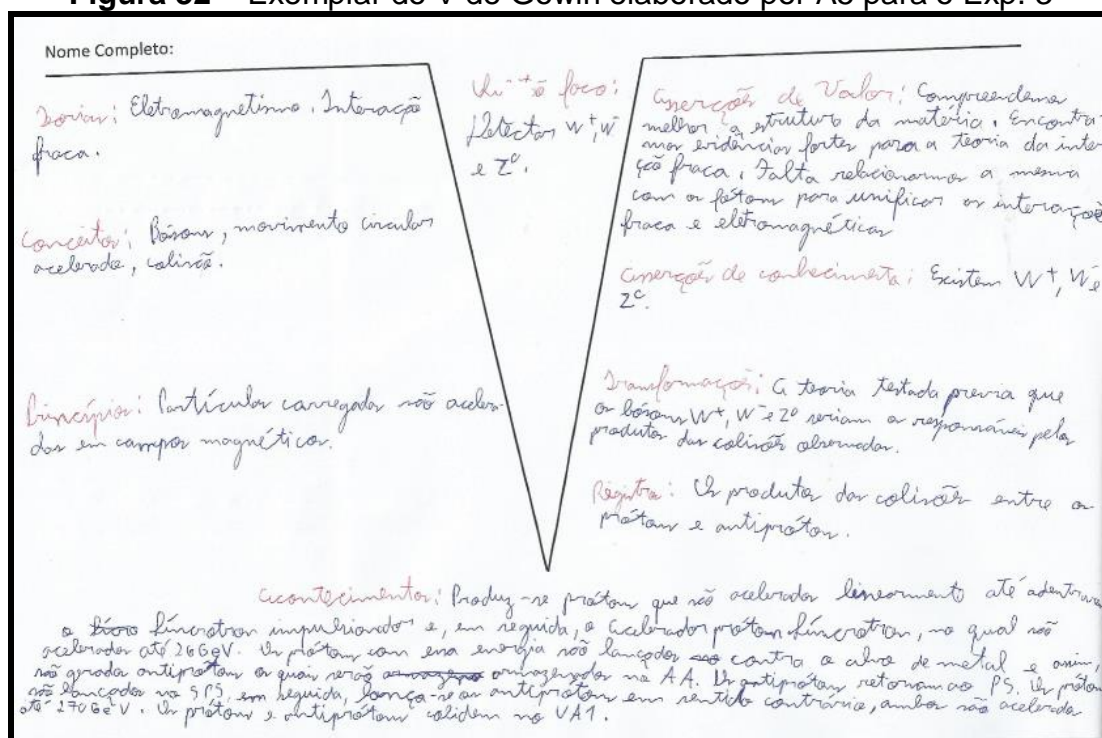 Figura 52 – Exemplar do V de Gowin elaborado por A5 para o Exp. 3
Nome Completo:
Teorias: Eletromagnetismo. Interação
fraca.
Conceitos: Bósons, movimento circular
acelerado, colisão.
Princípios: Partículas carregadas são acelera-
das em campos magnéticos.
foco:
Detectar W⁺, W⁻
e Z⁰.
Asserções de Valor: Compreendemos
melhor a estrutura da matéria. Encontra-
mos evidências fortes para a teoria da intera-
ção fraca. Falta relacionarmos a mesma
com os fótons para unificar as interações
fraca e eletromagnéticas
Asserções de conhecimento: Existem W⁺, W⁻ e
Z⁰.
Transformações: A teoria testada previa que
os bósons W⁺, W⁻ e Z⁰ seriam os responsáveis pelos
produtos das colisões observadas.
Registros: Os produtos das colisões entre os
prótons e antiprótons.
Acontecimentos: Produz-se prótons que são acelerados linearmente até adentrarem
o síncrotron impulsionador e, em seguida, o acelerador próton síncrotron, no qual são
acelerados até 26 GeV. Os prótons com essa energia são lançados contra o alvo de metal e assim,
são gerados antiprótons os quais serão armazenados na AA. Os antiprótons retornam ao PS. Os prótons
são lançados no SPS, em seguida, lança-se os antiprótons em sentido contrário, ambos são acelerados
até 270 GeV. Os prótons e antiprótons colidem no UA1.